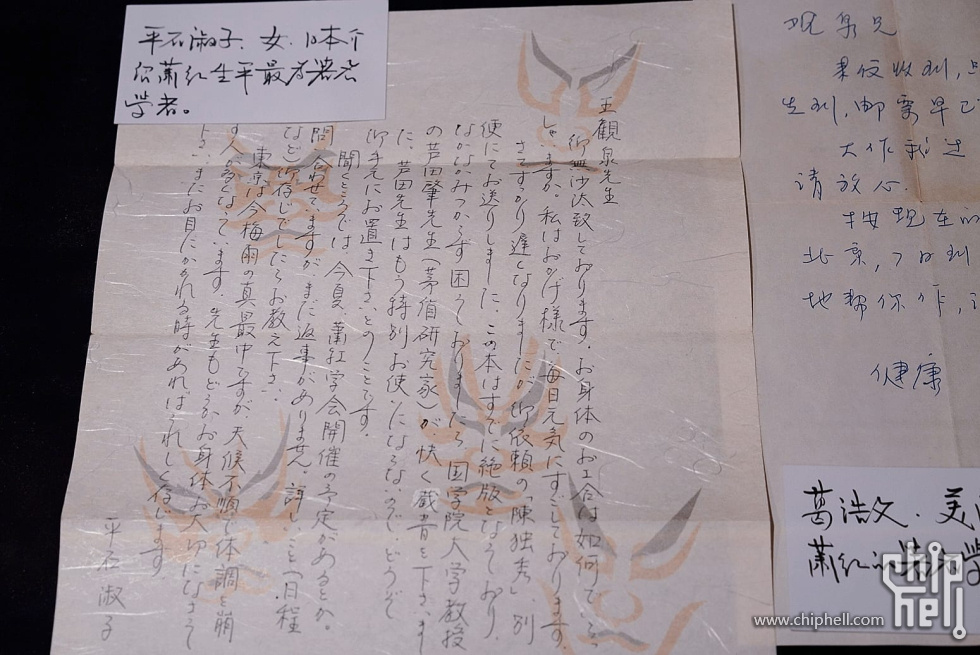 平石淑子、女、日本介
绍萧红生平最为著名
学者。
王観泉先生
御無沙汰致しております。お身体のお工合は如何でいらっ
しゃいますか。私はおかげ様で毎日元気にすごしております。
さてすっかり遅くなりましたが御依頼の「陳独秀」別
便にてお送りしました。この本はすでに絶版となっており、
なかなかみつからず困っておりましたら国学院大学教授
の芦田肇先生（茅盾研究家）が快く蔵書を下さいまし
に、芦田先生はもう特別お使いにならないので、どうぞ
御手元にお置き下さいとのことです。
聞くところでは、今夏、蕭紅学会開催の予定があるとか。
問い合わせていますが、まだ返事がありません。詳しいこと（日程
など）御存じでしたらお教え下さい。
東京は今梅雨の真最中ですが、天候不順で体調を崩
す人が多くなっています。先生もどうかお身体お大切になさって
下さい。またお目にかかれる時があればうれしく存じます
平石淑子
观泉兄
来信收到，
生到，邮票早已
大作我
请放心。
按现在
北京，7日到
地帮你作，
健康
葛浩文、美
萧红的著名学
www.chiphell.com
chip
hell